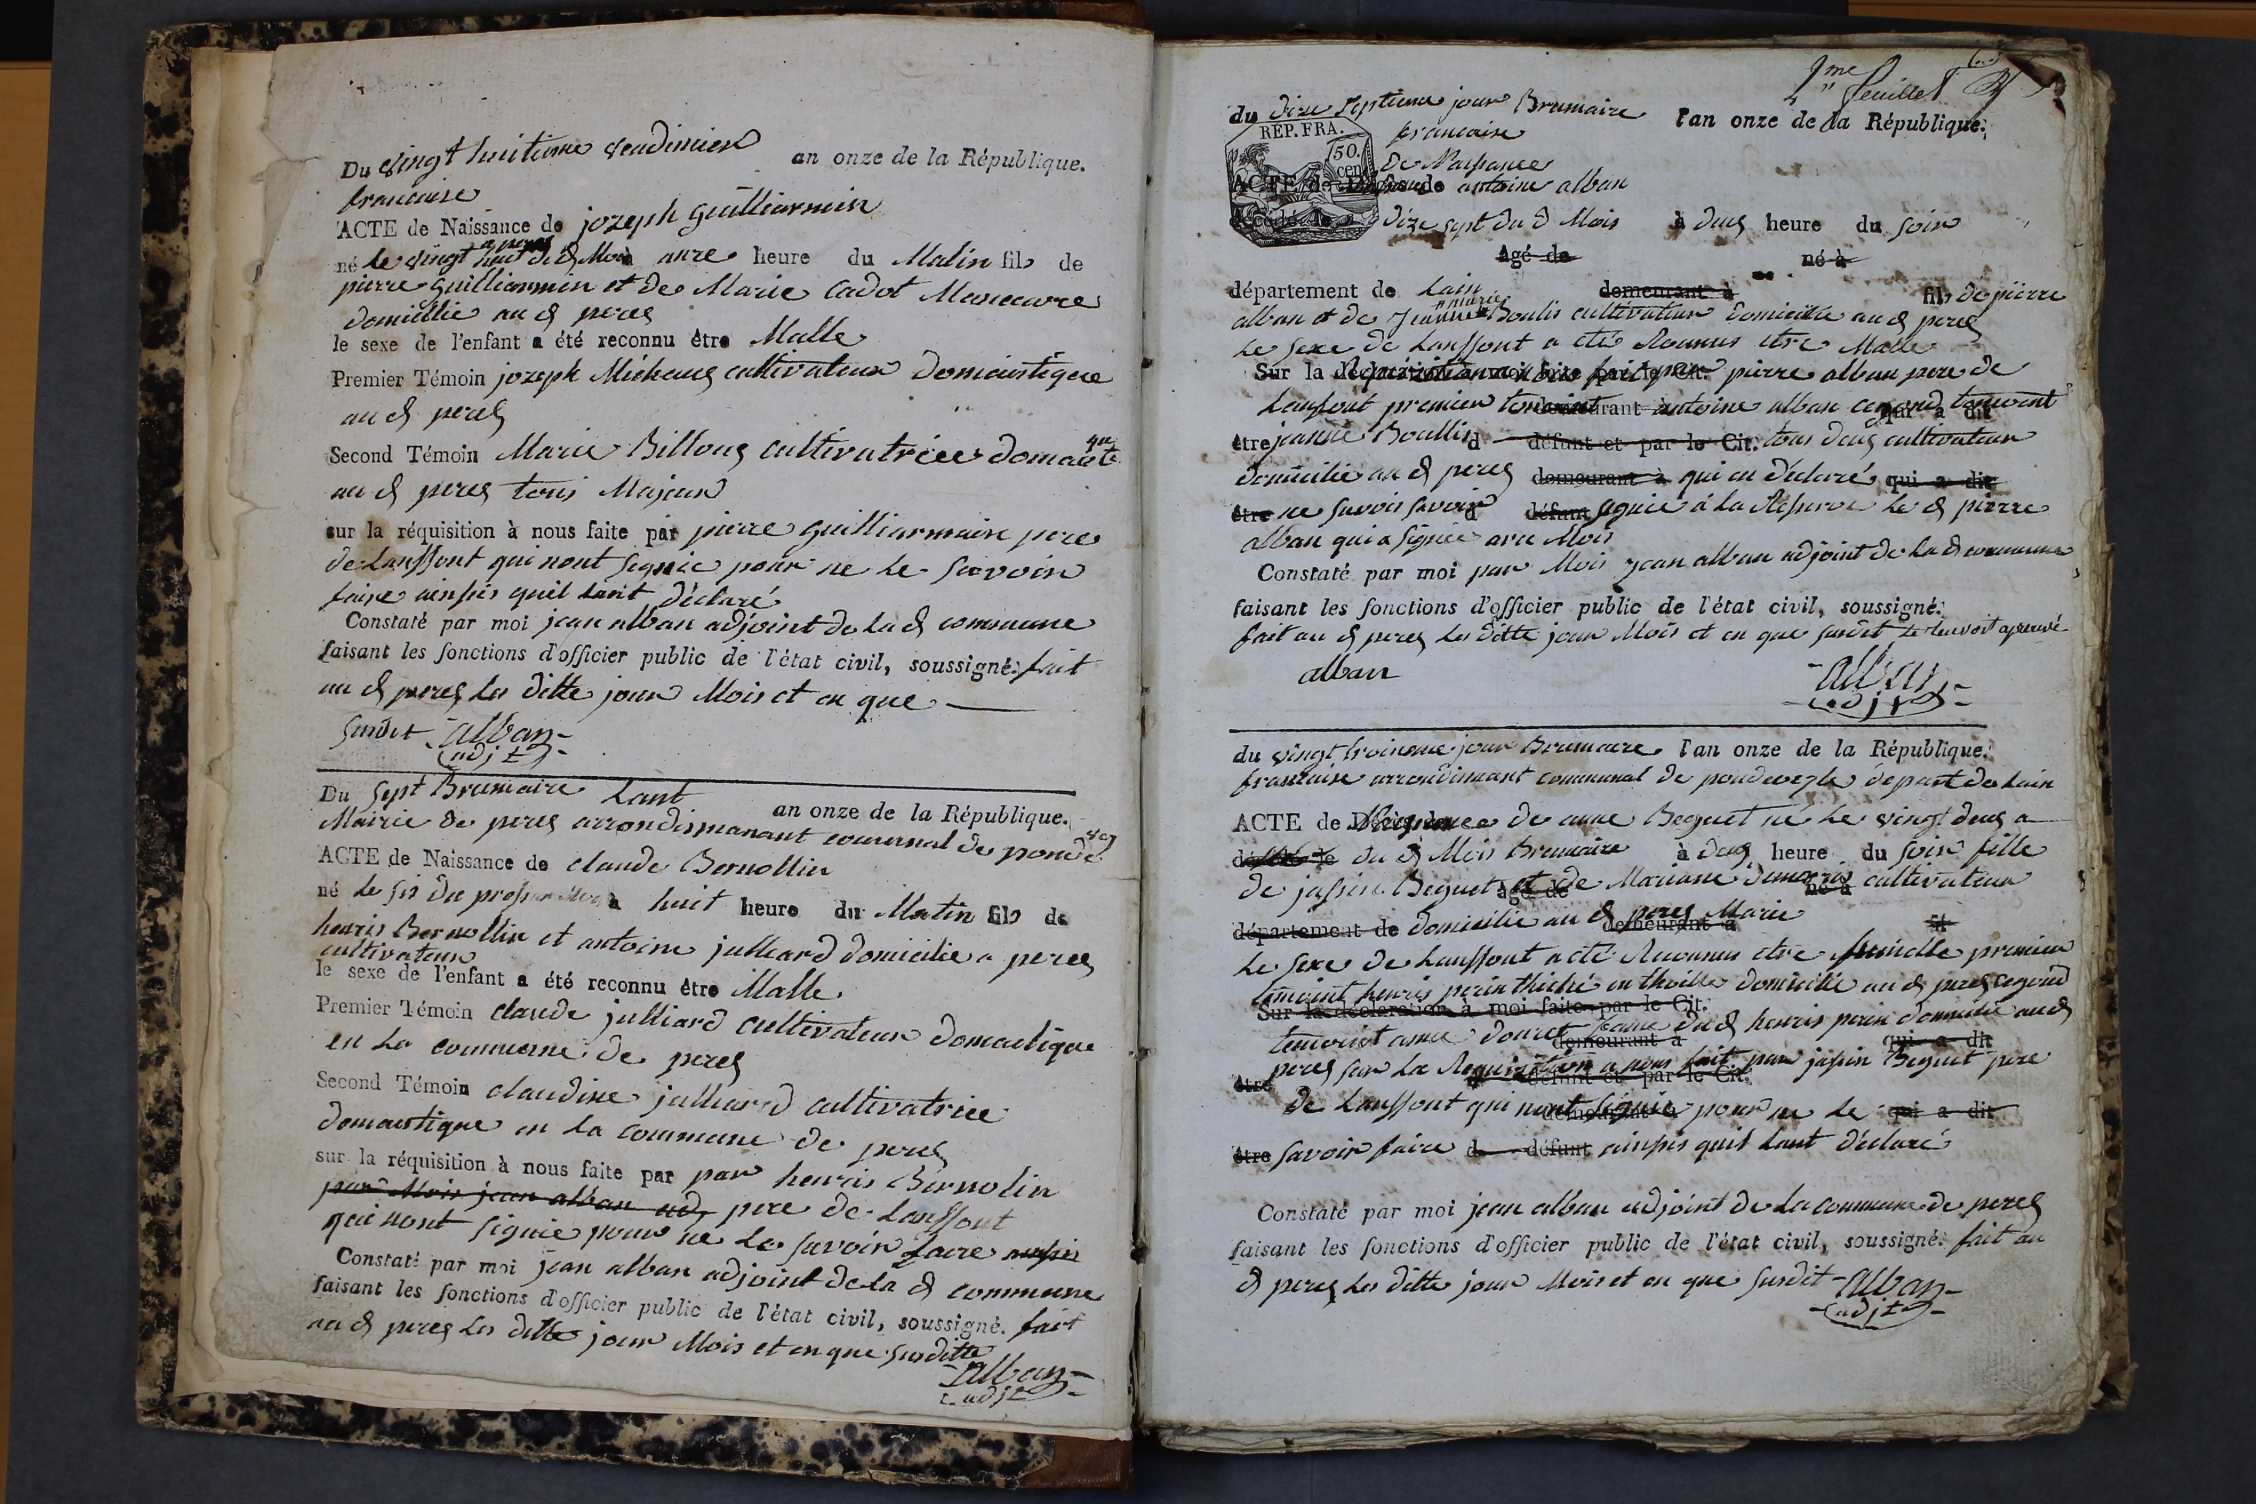 Du vingt huitieme vendimier an onze de la République.
francaise
ACTE de Naissance de jozeph guilliarmin
a peres
né le vingt huit dud Mois à anze heure du Matin fils de
pierre guilliarmin et de Marie Cadot
domicillie au d peres
le sexe de l'enfant a été reconnu être Malle
Premier Témoin jozeph Michaus cultivateur domaistique
au d peres
Second Témoin Marie Billous cultivatrice
au d peres tous Majeur
sur la réquisition à nous faite par pierre guilliarmain pere
de lanffent qui nont signie pour ne le scavoir
faire ainssis quil lont déclaré
Constaté par moi jean alban adjoint de la d commune
faisant les fonctions d'officier public de l'état civil, soussigné. fait
au d peres les ditte jour Mois et en que
surdit alban
adjt
Du sept Brumaire lant an onze de la République.
Mairie de peres arrondismanant communal de
ACTE de Naissance de claude Bernollin
né le sis du à huit heure du Matin fils de
henris Bernollin et antoine julliard domicilie a peres
cultivateur
le sexe de l'enfant a été reconnu être Malle
Premier Témoin claude julliard cultivateur domaestique
en la commune de peres
Second Témoin claudine julliard cultivatrice
domaistique en la commune de peres
sur la réquisition à nous faite par par henris Bernolin
par Mois jean alban adj pere de lanffont
qui nont signie pour ne le savoir faire
Constaté par moi jean alban adjoint de la d commune
faisant les fonctions d'officier public de l'état civil, soussigné. fait
au d peres les ditte jour Mois et en que surditte
alban
adjt
2me feuillet
du dize septieme jour Brumaire l'an onze de la République.
francaise
REP. FRA.
50. cen.
de Naissance
ACTE de antoine alban
dize sept du d Mois à deus heure du soir
Agé de né à
département de lain demeurant à fils de pierre
marie
alban et de Jeanne Boulis cultivateur domicillie au d peres
le sexe de lanffont a été Reconnus etre Malle
Sur la déclaration à moi faite par le Cit. pierre alban pere de
lanffont premier temoint demeurant à antoine alban cegond temoint qui a dit
être jeanne Boullis d défunt et par le Cit. tous deus cultivateur
domicilié au d peres demeurant à qui on déclaré qui a dit
être ne savoir savoir d défunt signie à la Reserve le d pierre
alban qui a signie avec Mois
Constaté par moi par Mois jean alban adjoint de la d commune
faisant les fonctions d'officier public de l'état civil, soussigné.
fait au d peres les ditte jour Mois et en que surdit
alban alban
adjt
du vingt troisieme jour Brumaire l'an onze de la République.
francaise arrondimant communal de depart de lain
ACTE de de anne Beguet né le vingt deus a
décédé le du d Mois Brumaire à deus heure du soir fille
de jassin Beguet âgé de et de Mariane né à cultivateur
département de domicilie au d peres Marie demeurant à
le sexe de lanffont a été Reconnus etre fumelle premier
temoint henris perin domicilie au d peres cegond
Sur la déclaration à moi faite par le Cit.
temoint anne femme du d henris perin domicilie au d
demeurant à qui a dit
peres sur la Requisition a nous fait par jassin Beguet pere
être défunt et par le Cit.
de lanffont qui nont signie pour ne le qui a dit
être savoir faire d défunt ainssis quil lont déclaré
Constaté par moi jean alban adjoint de la commune de peres
faisant les fonctions d'officier public de l'état civil, soussigné. fait au
d peres les ditte jour Mois et en que surdit alban
adjt